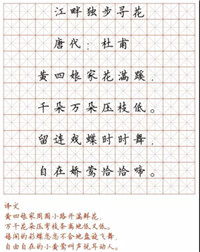 江畔独步寻花
唐代：杜甫
黄四娘家花满蹊，
千朵万朵压枝低。
留连戏蝶时时舞，
自在娇莺恰恰啼。
译文
黄四娘家周围小路开满鲜花，
万千花朵压弯枝条离地低又低。
嬉闹的彩蝶恋恋不舍地盘旋飞舞，
自由自在的小黄莺叫声悦耳动人。